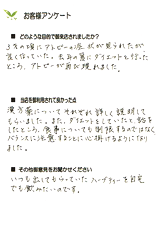 お客様アンケート
■ どのような目的で御来店されましたか?
3才の頃にアトピーの症状が見られたが
良くなっていた。七五三の着にダイエットを行った
ところ、アトピーが再び現れました。
■ 当店を御利用されて良かった点
漢方薬についてそれぞれ詳しく説明して
もらいました。また、ダイエットをしていたと話を
したところ、食事についても制限するのではなく
バランスに注意することに心掛けるようになり
ました。
■ その他御意見をお聞かせください
いつも出してもらっていたハーブティーを自宅
でも飲みたいのです。